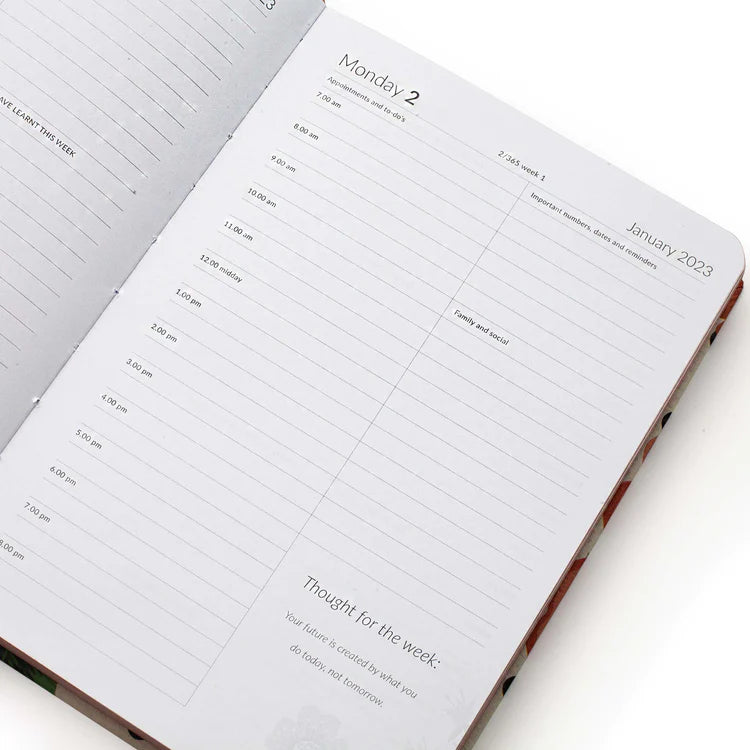 AVE LEARNT THIS WEEK
Monday 2
Appointments and to-do's
2/365 week 1
January 2023
7.00 am
8.00 am
9.00 am
10.00 am
11.00 am
12.00 midday
1.00 pm
2.00 pm
3.00 pm
4.00 pm
5.00 pm
6.00 pm
7.00 pm
8.00 pm
Important numbers, dates and reminders
Family and social
Thought for the week:
Your future is created by what you
do today, not tomorrow.